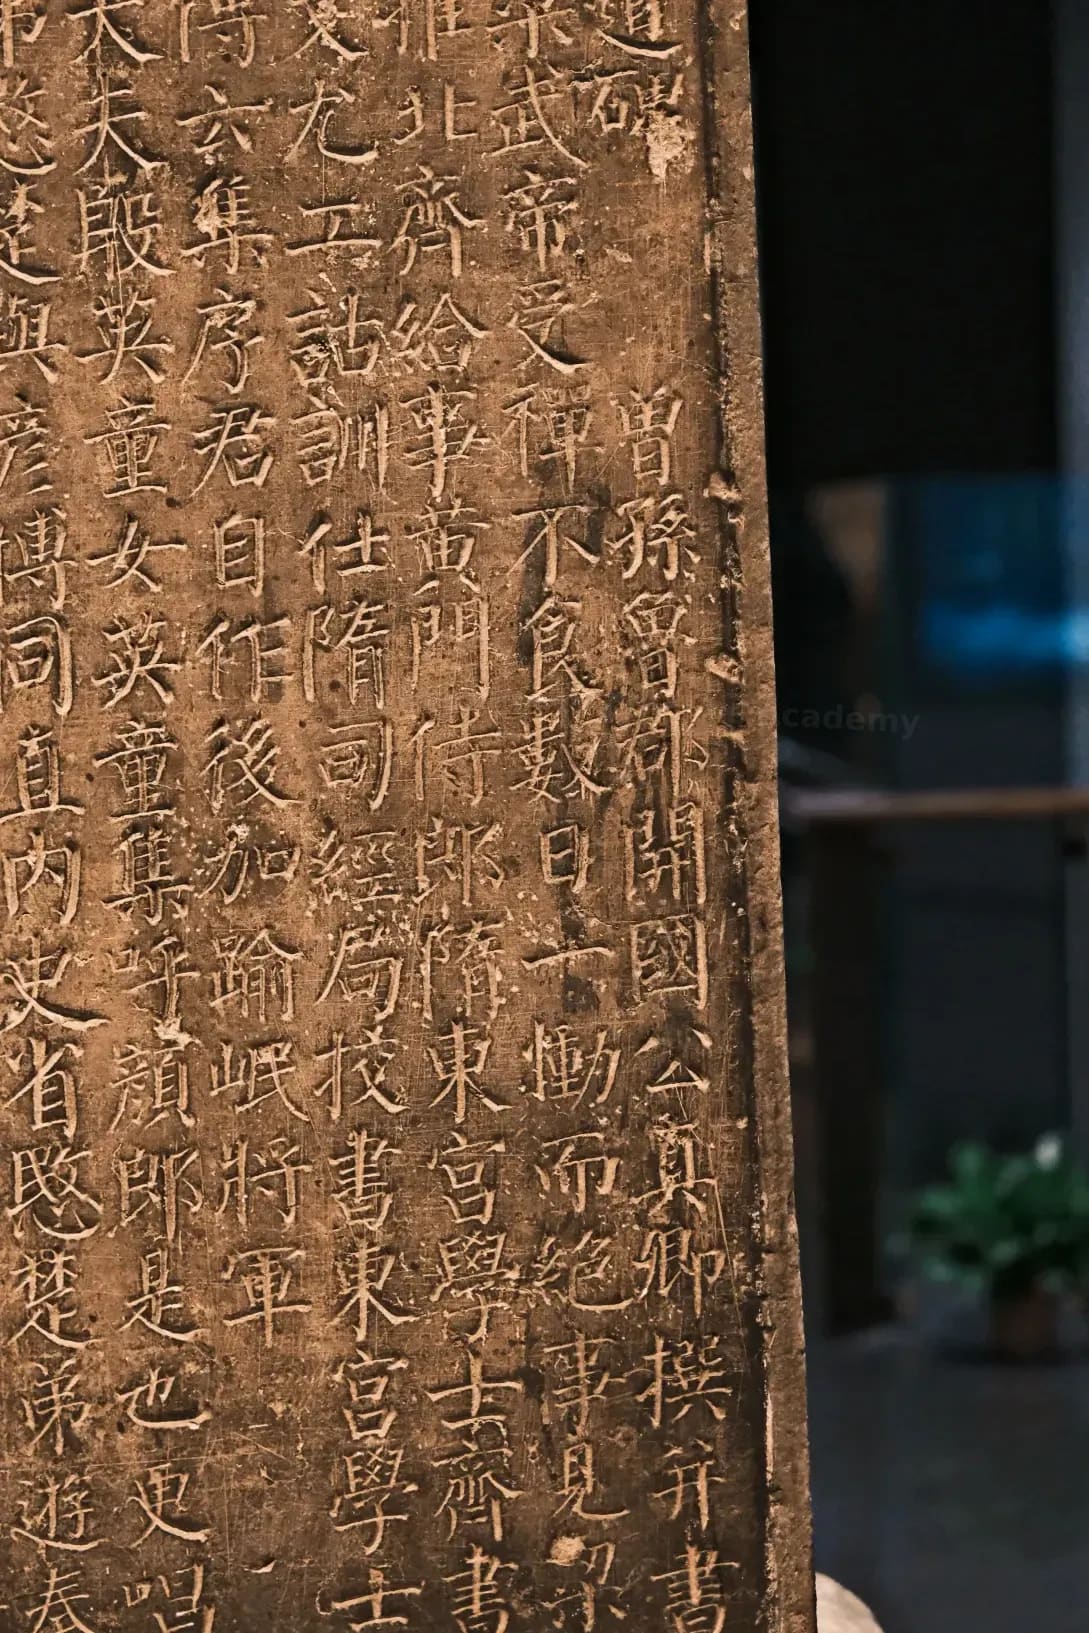 道碑 曾孫魯郡開國公真卿撰并書
梁武帝受禪不食數日一慟而絕事見梁
推北齊給事黃門侍郎隋東宮學士齊書
文尤工詁訓仕隋司經局校書東宮學士
傳六集序君自作後加踰岷將軍
大夫殷英童女英童集呼顏郎是也更唱
愍楚與彥博同直內史省愍楚弟遊秦
Academy